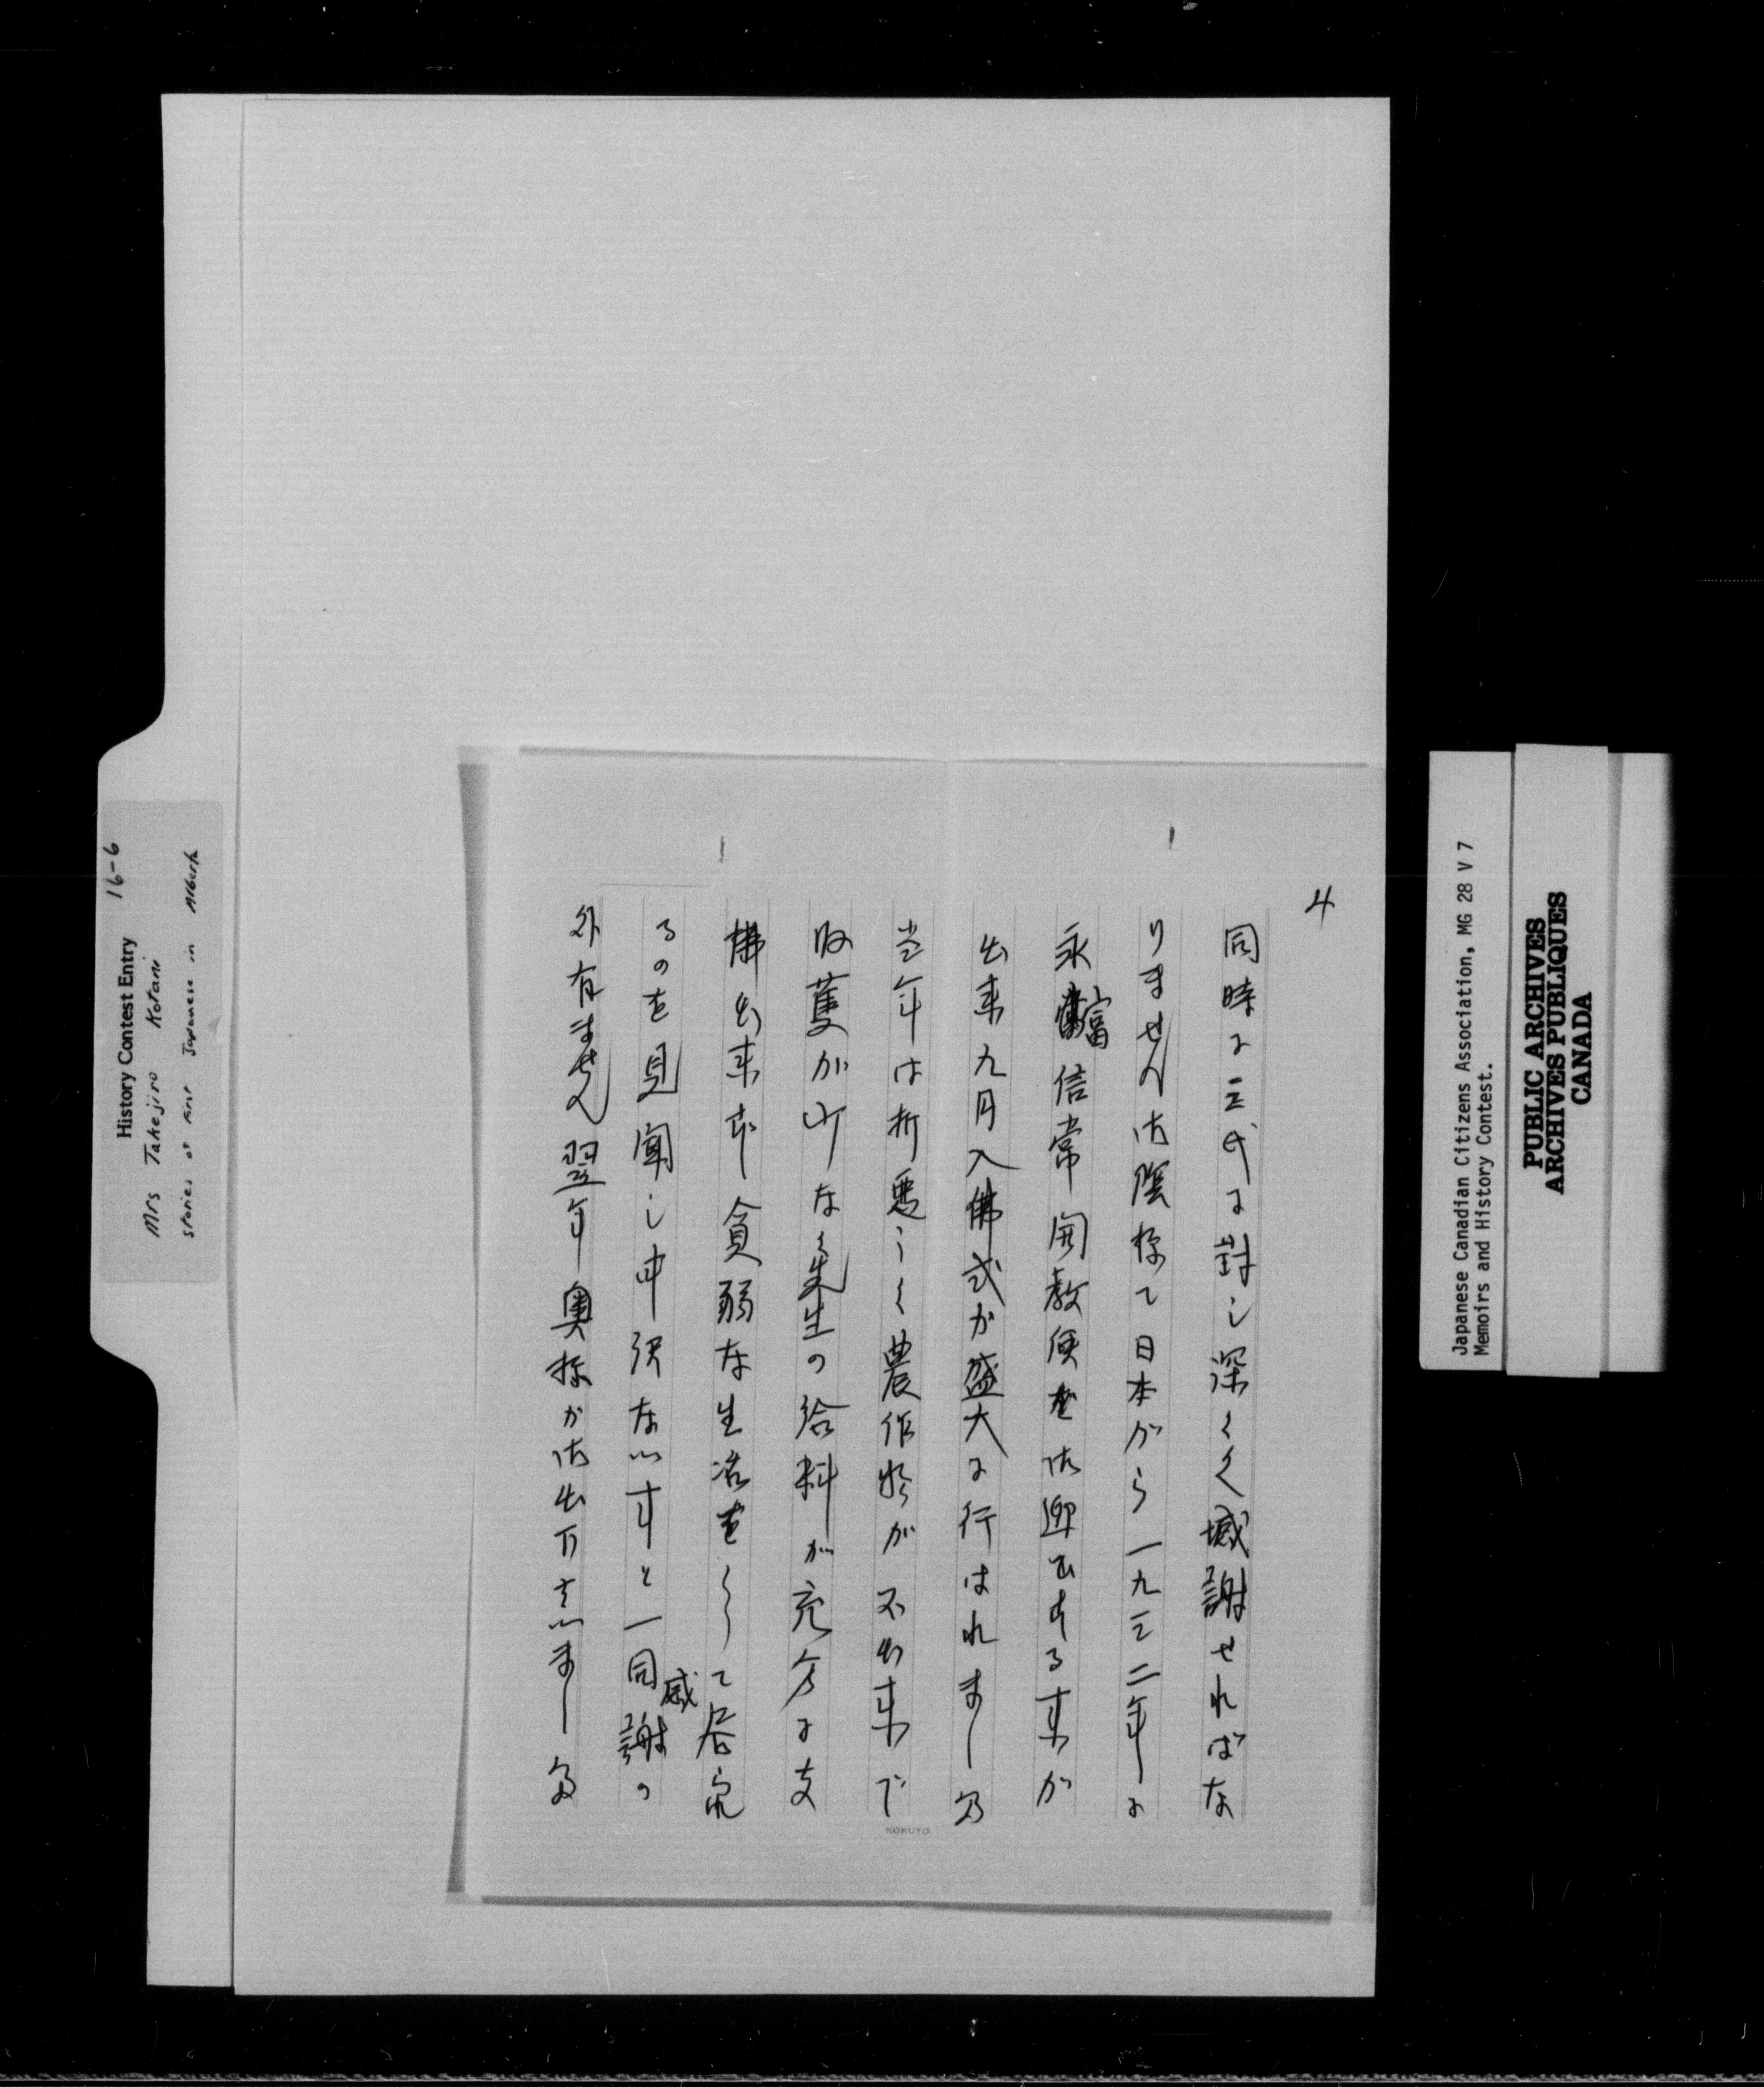 4
同時に三氏に対し深く〱感謝せればな
りません御陰様で日本から一九三二年に
永富信常開教使を御迎出する事が
出来九月入佛式が盛大に行はれました
当年は折悪しく農作物が不出来で
収獲が少なく先生の給料が充分に支
拂出来ず貧弱な生活をして居られ
るのを見聞し申訳ないすと一同感謝の
外有ません翌年奥様が御出下さいました
KOKUYO
History Contest Entry 16-6
Mrs Takejiro Kotani
stories of First Japanese in Alberta
Japanese Canadian Citizens Association, MG 28 V 7
Memoirs and History Contest.
PUBLIC ARCHIVES
ARCHIVES PUBLIQUES
CANADA